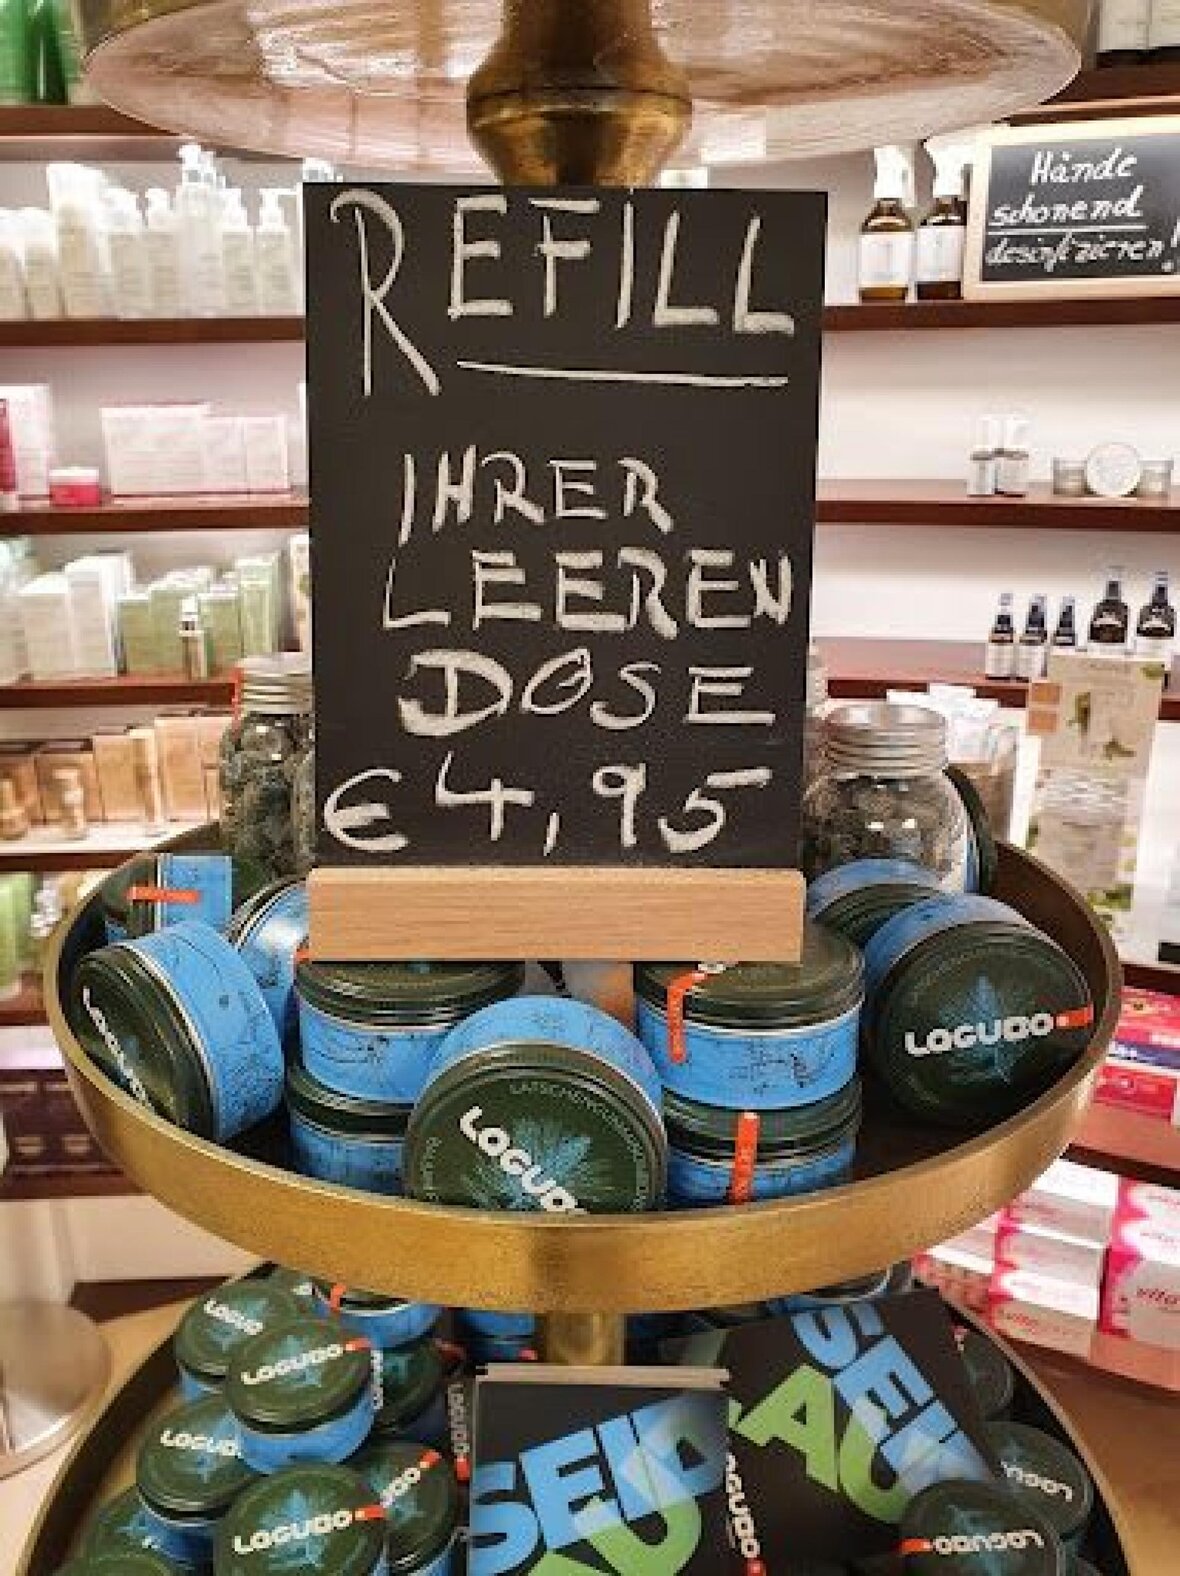 REFILL
IHRER
LEEREN
DOSE
€4,95
Hände
schonend
desinfizieren!
LOGUDO
LOGUDO
LOGUDO
LOGUDO
LOGUDO
LOGUDO
SEID
AU
SEID
AU
LOGUDO
LOGUDO